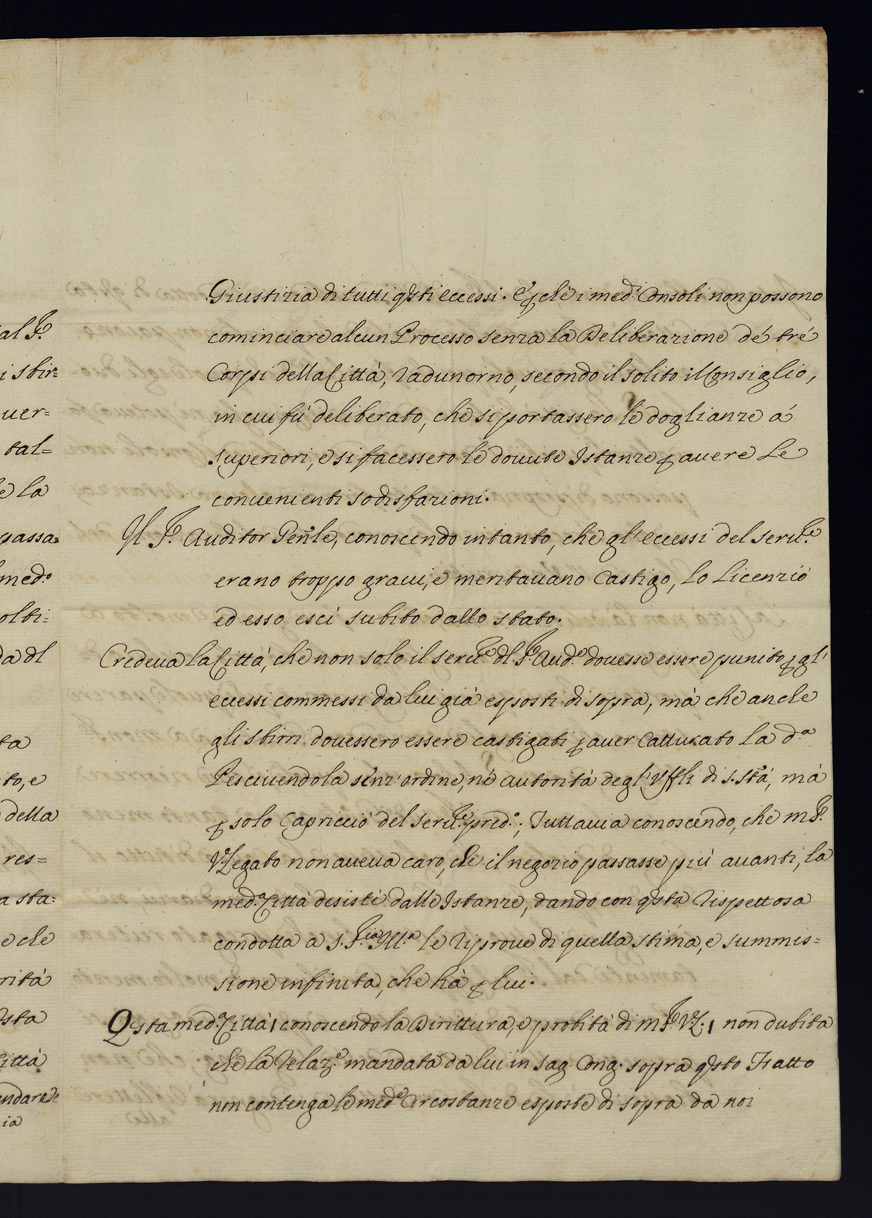 Giustizia di tutti q̃sti eccessi. E p̃che i med.ⁱ Consoli non possono
cominciare alcun Processo senza la Deliberazione de' tré
Corpi della Città, radunorno, secondo il solito il Consiglio,
in cui fu deliberato, che si portassero le doglianze á
Superiori, e si facessero le dovute Istanze p avere le
convenienti sodisfazioni.
Il S.ʳ Auditor Gen̄le, conoscendo intanto, che gl'eccessi del serv.ʳᵉ
erano troppo gravi, e meritavano Castigo, lo licenziò
ed esso escì subito dallo stato.
Credeva la Città, che non solo il serv.ʳᵉ dl S.ʳ Aud.ʳᵉ dovesse essere punito p gl'
eccessi commessi da lui già esposti di sopra, mà che anche
gli sbirri dovessero essere castigati p aver catturato la d.ᵃ
Pescivendola senz'ordine, né autorità degl'Uffli di s. stá, mà
p solo Capriccio del serv.ʳᵉ pred.ᵒ; Tuttavia conoscendo, che m.ʳ
V.Legato non aveva caro, che il negozio passasse più avanti, la
med.ᵃ Città desisté dalle Istanze, dando con q̃sta rispettosa
condotta a s.S.ʳⁱᵃ Ill.ᵃ le riprove di quella stima, e summis=
sione infinita, che hà p lui.
Q̃sta med.ᵃ Città, conoscendo la Dirittura, e probità di m.ʳ V.L., non dubita
che la relaz.ᵉ mandata da lui in sag. Cong. sopra q̃sto Fatto
non contenga le med.ᵉ Circostanze esposte di sopra da noi
al S.ʳ
i sbir=
ver=
tal=
e la
passa=
med.ᵒ
olti=
da dl
ta
to, e
della
res=
a sta=
e che
rità
sta
Città
endare
ia